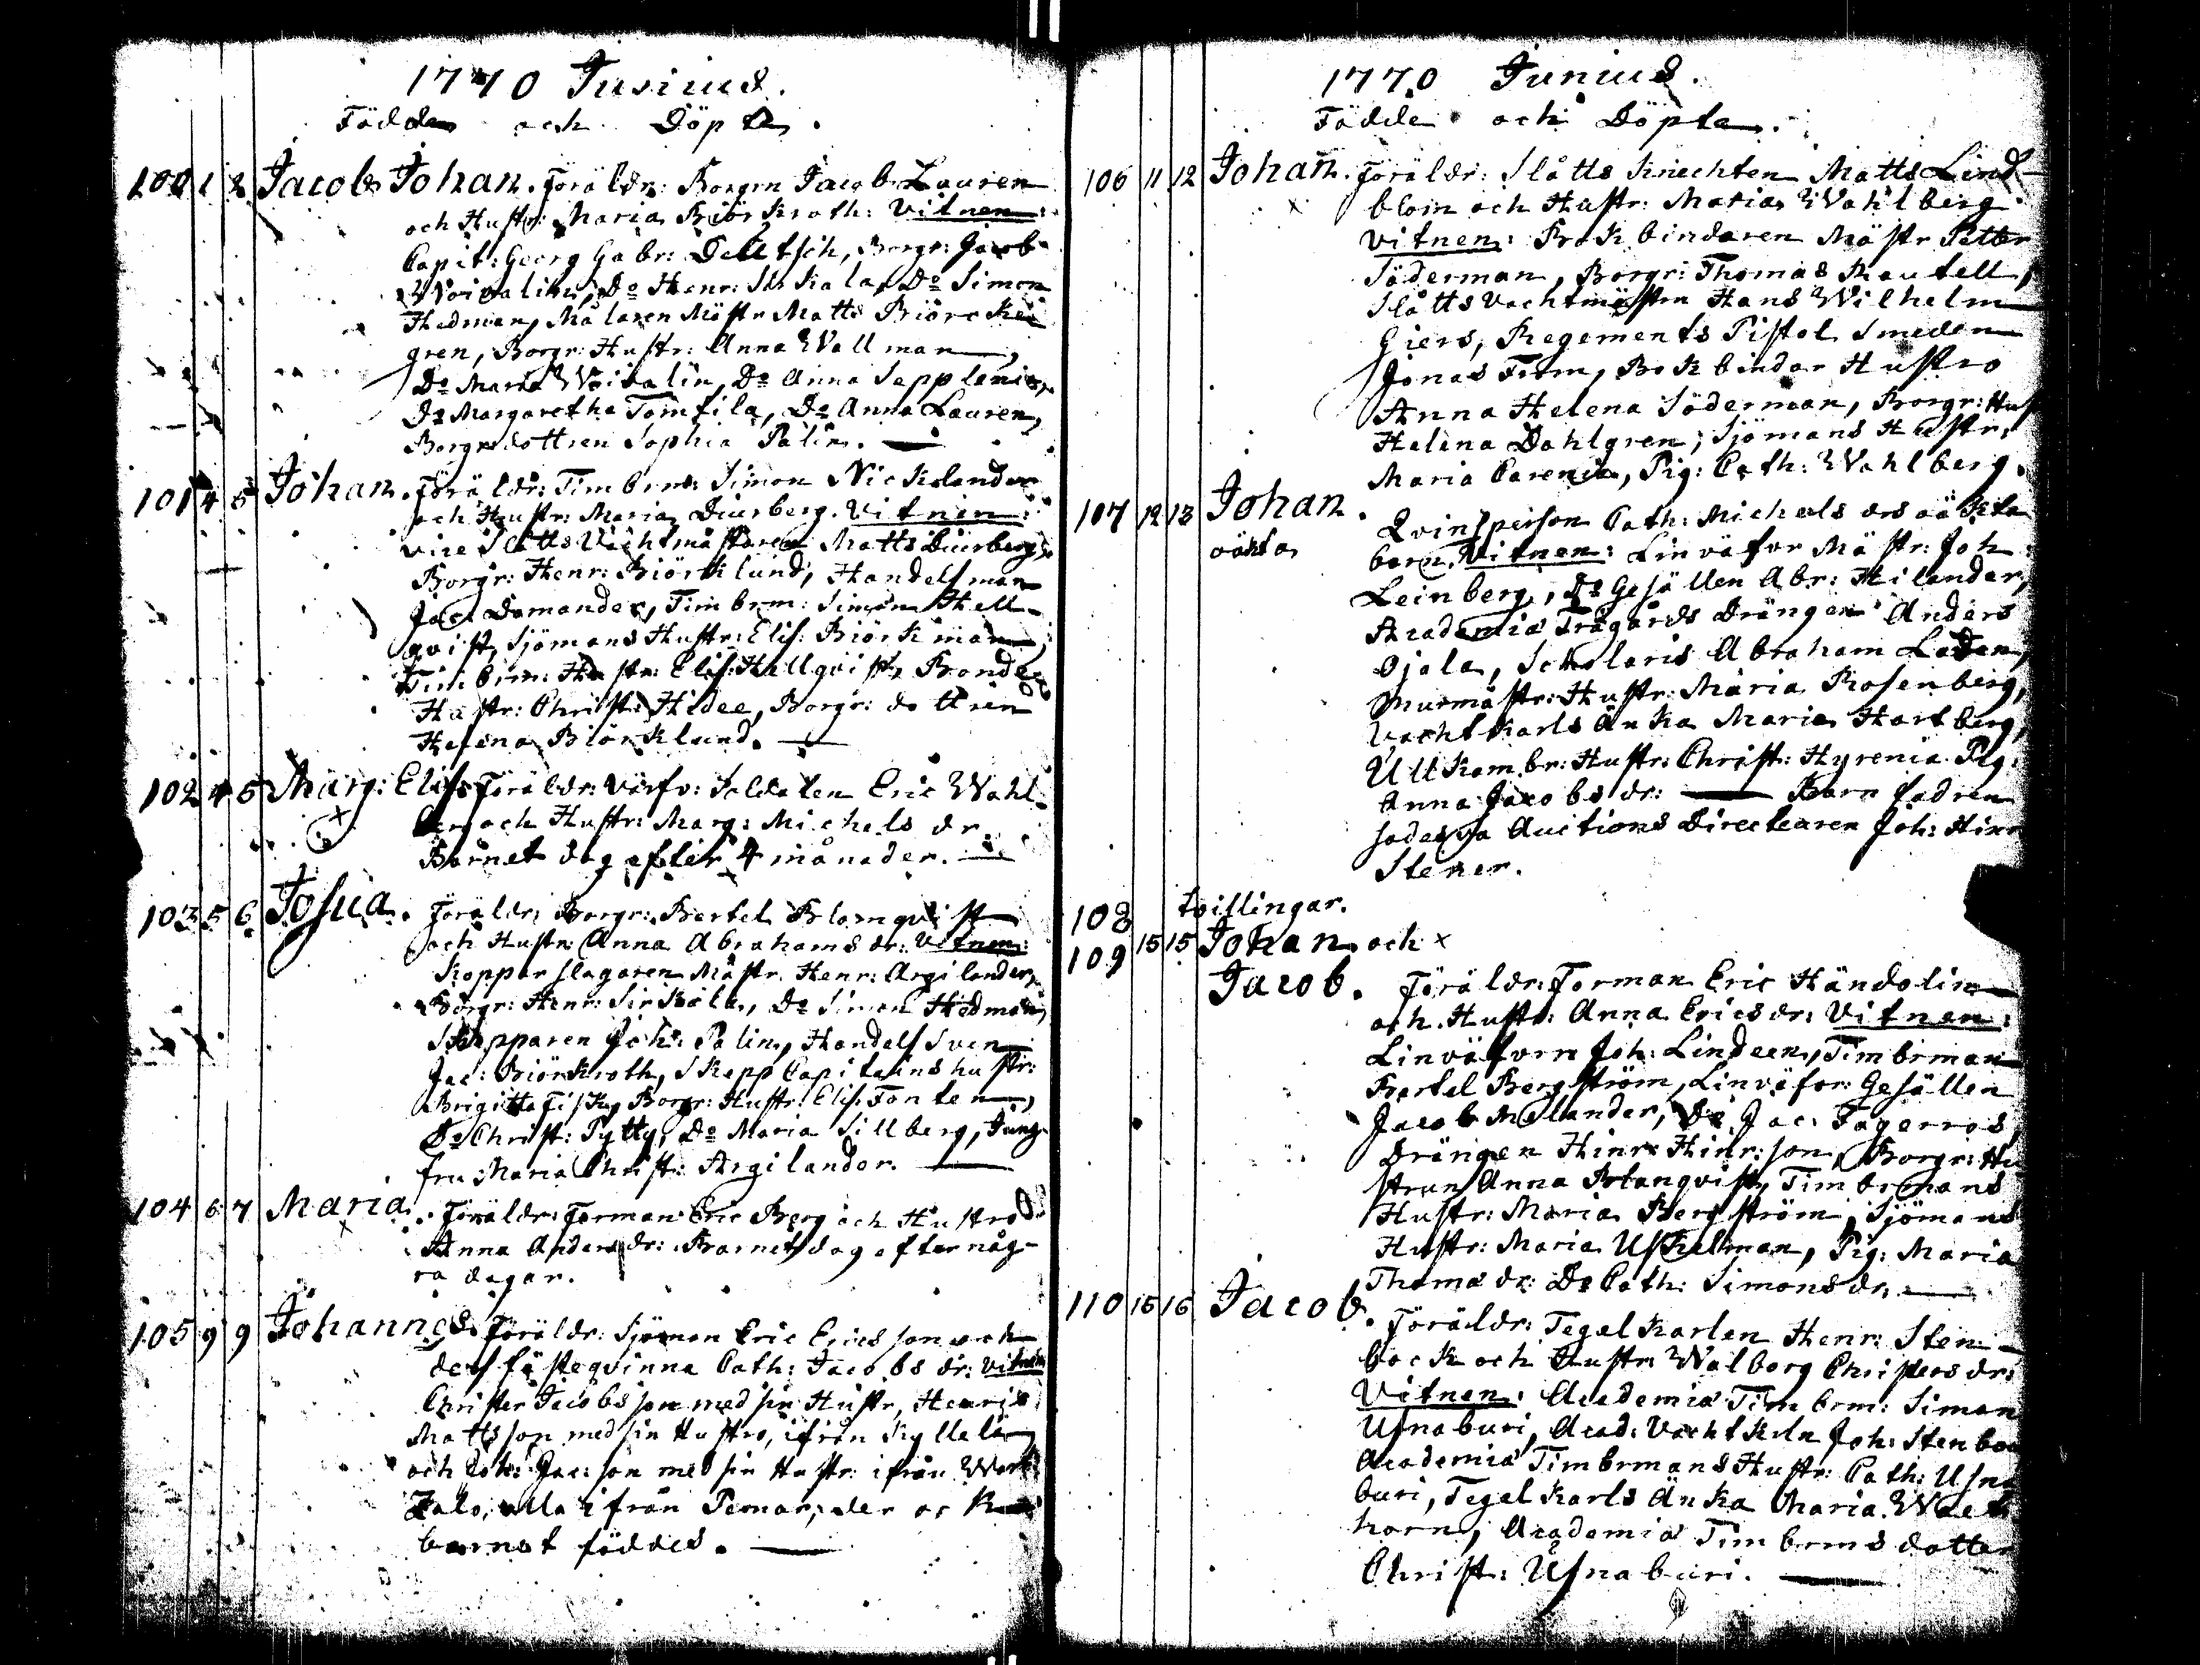 1770 Junius.
Födde och Döpte.
100 1 2 Jacob Johan. Föräldr: Borgrn Jacob Lauren
och Hustr: Maria Biörkroth: Vitnen:
Capit: Georg Gabr: Delitsch, Borgr: Jacob
Woivalin, Do Henr: Sirkala, Do Simon
Hedman, Målaren Mästr Matts Biörcke
gren, Borgr: Hustr: Anna Wallman,
Do Maria Woivalin, Do Anna Sepplenia,
Do Margaretha Tomtila, Do Anna Lauren,
Borgredottren Sophia Palin.
101 4 5 Johan. Föräldr: Timbrm: Simon Nicklander
och Hustr: Maria Duerberg. Vitnen:
vice Slotts Vachtmästaren Matts Duerberg,
Borgr: Henr: Biörklund, Handelsman
Jac: Damander, Timbrm: Simon Hell-
qvist, Sjömans Hustr: Elis: Biörkman,
Timbrm: Hustr: Elis: Hellqvist, Bonde
Hustr: Christ: Hidee, Borgr: dottren
Helena Biörklund.
102 4 5 Marg: Elis: Föräldr: Värfv: Soldaten Eric Wahl-
berg och Hustr: Marg: Michels dr.
Barnet dog efter 4 månader.
103 5 6 Josua. Föräldr: Borgr: Bertel Blomqvist
och Hustr: Anna Abrahams dr: Vitnen:
Kopparslagaren Mästr. Henr: Argilander,
Borgr: Henr: Sirkala, Do Simon Hedman,
Skepparen Joh: Palin, Handels Sven
Jac: Biörkroth, Skepp Capitains hustr:
Brigitta Fisk, Borgr: Hustr: Elis: Fonten,
Do Christ: Pytty, Do Maria Sillberg, Jung-
fru Maria Christ: Argilander.
104 6 7 Maria. Föräldr: Forman Eric Berg och Hustro
Anna Anders dr: Barnet dog efter någ-
ra dagar.
105 9 9 Johannes. Föräldr: Sjöman Eric Ericsson och
dess fästeqvinna Cath: Jacobs dr: Vitnen
Christer Jacobsson med sin Hustr, Henric
Mattsson med sin Hustro, ifrån Kyllälä
och Joh: Jac:son med sin Hustr: ifrån
alla ifrån Pemar, der ock
barnet föddes.
1770 Junius.
Födde och Döpte.
106 11 12 Johan. Föräldr: Slåtts Knechten Matts Lind-
blom och Hustr: Maria Wahlberg.
Vitnen: Bokbindaren Mästr Petter
Söderman, Borgr: Thomas Kautell,
Slåtts Vachtmästrn Hans Wilhelm
Giers, Regements Pistol Smeden
Jonas Tim, Bokbindar Hustro
Anna Helena Söderman, Borgr: Hus
Helena Dahlgren, Sjömans Hustr:
Maria Carenia, Pig: Cath: Wahlberg.
107 12 13 Johan. Qvinsperson Cath: Michels drs oäkta
oäkta barn. Vitnen: Linväfvr Mästr: Joh:
Leinberg, Do Gesällen Abr: Hilander,
Academiæ Trägårds Drängen Anders
Ojala, Scholaris Abraham Laden,
Murmästr: Hustr: Maria Rosenberg,
Vachtkarls Änka Maria Hartberg,
Ullkambr: Hustr: Christ: Hyrenia Pig:
Anna Jacobs dr: Barn fadren
sades va Auctions Directeuren Joh: Hinr
Stener.
108 tvillingar.
109 15 15 Johan och
Jacob. Föräldr: Forman Eric Händolin
och Hustr: Anna Erics dr: Vitnen:
Linväfvrn Joh: Lindeen, Timbrman
Bertel Bergström, Linväfvr: Gesällen
Jacob Melander, Do Jac: Fagerros,
Drängen Hinr: Hinr:son, Borgr: Hu
strun Anna Blanqvist, Timbrmans
Hustr: Maria Bergström, Sjömans
Hustr: Maria Uskelman, Pig: Maria
Thomæ dr: Do Cath: Simons dr.
110 15 16 Jacob. Föräldr: Tegelkarlen Henr: Sten-
bock och Hustr: Walborg Christers dr:
Vitnen: Academiæ Timbrm: Simon
Usnaburi, Acad: Vachtkrln Joh: Stenboc
Academiæ Timbrmans Hustr: Cath: Usna
buri, Tegelkarls Änka Maria
horn, Academiæ Timbrms dotter
Christ: Usnaburi.